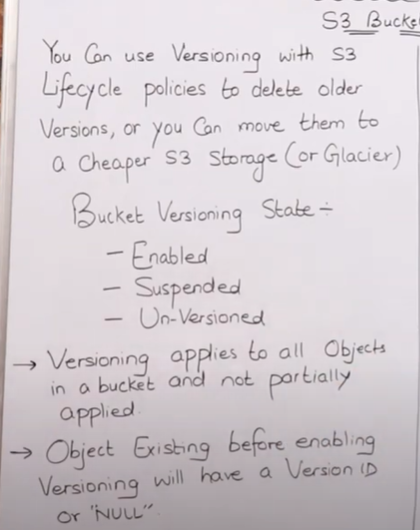 S3 Bucke
You Can use Versioning with S3
Lifecycle policies to delete older
Versions, or you Can move them to
a Cheaper S3 Storage (or Glacier)
Bucket Versioning State ÷
– Enabled
– Suspended
– Un-Versioned
→ Versioning applies to all Objects
in a bucket and not partially
applied.
→ Object Existing before enabling
Versioning will have a Version ID
or "NULL".